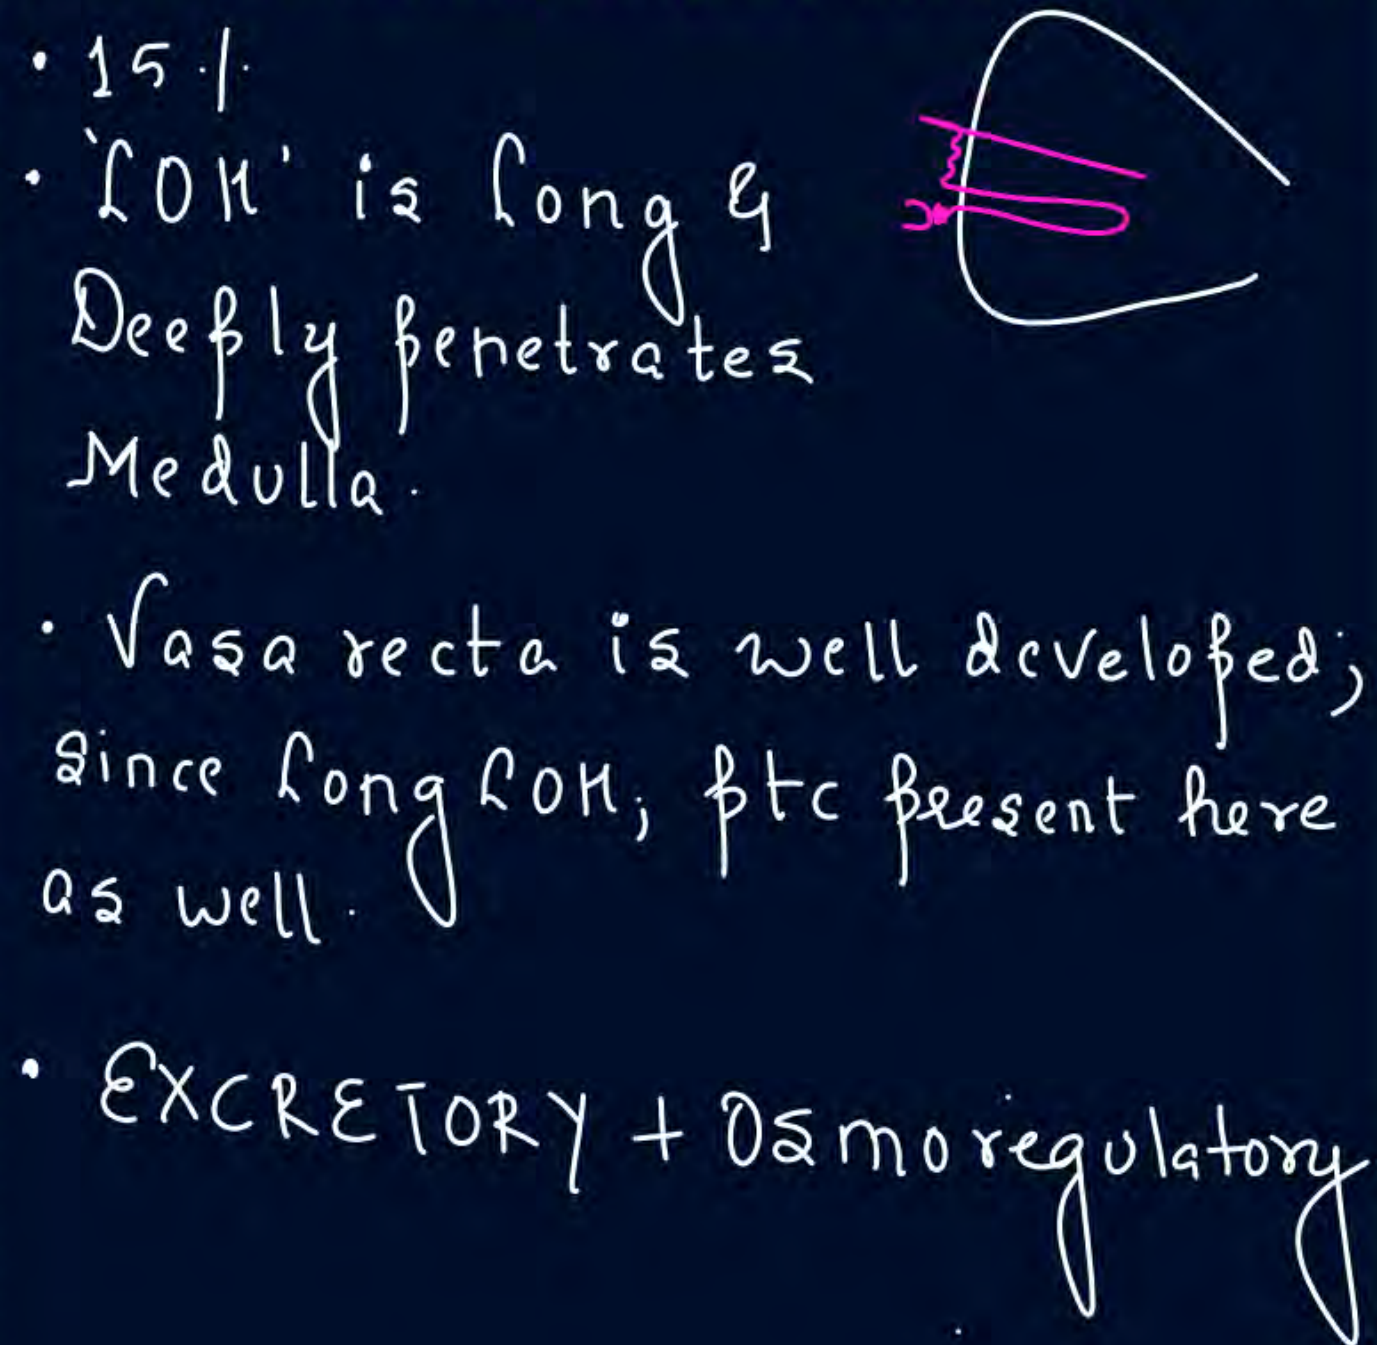 • 15 %
• 'LOH' is long &
Deeply penetrates
Medulla.
• Vasa recta is well developed;
since long LOH; ptc present here
as well.
• EXCRETORY + Osmoregulatory